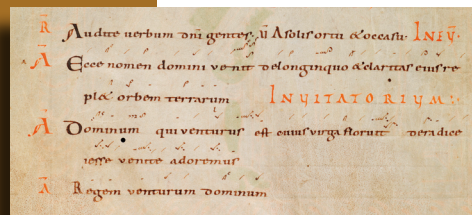 R Audite uerbum dnı gentes. ỹ A solis ortu & occasu. IN EỸ.
A Ecce nomen domini uenit delonginquo & claritas eius re
plet orbem terrarum INUITATORIUM:
A Dominum qui uenturus est cuius uirga floruit deradice
iesse uenite adoremus
A Regem uenturum dominum